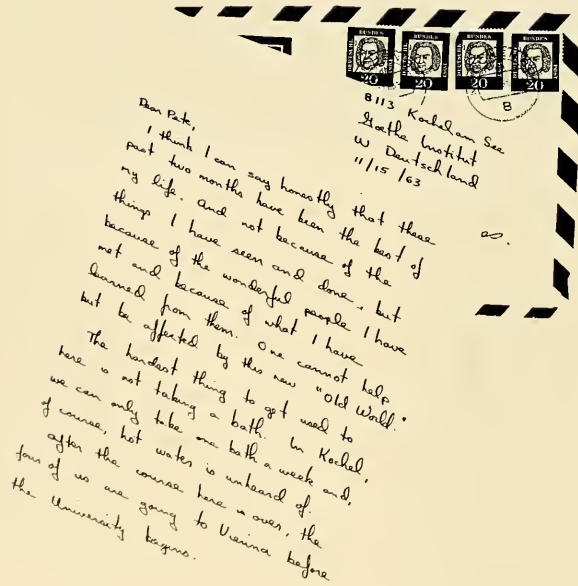 DEUTSCHE BUNDESPOST
20
DEUTSCHE BUNDESPOST
20
DEUTSCHE BUNDESPOST
20
DEUTSCHE BUNDESPOST
20
8113 Kochel am See
Goethe Institut
W Deutschland
11/15/63
Dear Pete,
I think I can say honestly that these
past two months have been the best of
my life. And not because of the
things I have seen and done, but
because of the wonderful people I have
met and because of what I have
learned from them. One cannot help
but be affected by this new "Old World."
The hardest thing to get used to
here is not taking a bath. In Kochel,
we can only take one bath a week and,
of course, hot water is unheard of.
After the course here is over, the
four of us are going to Vienna before
the University begins.